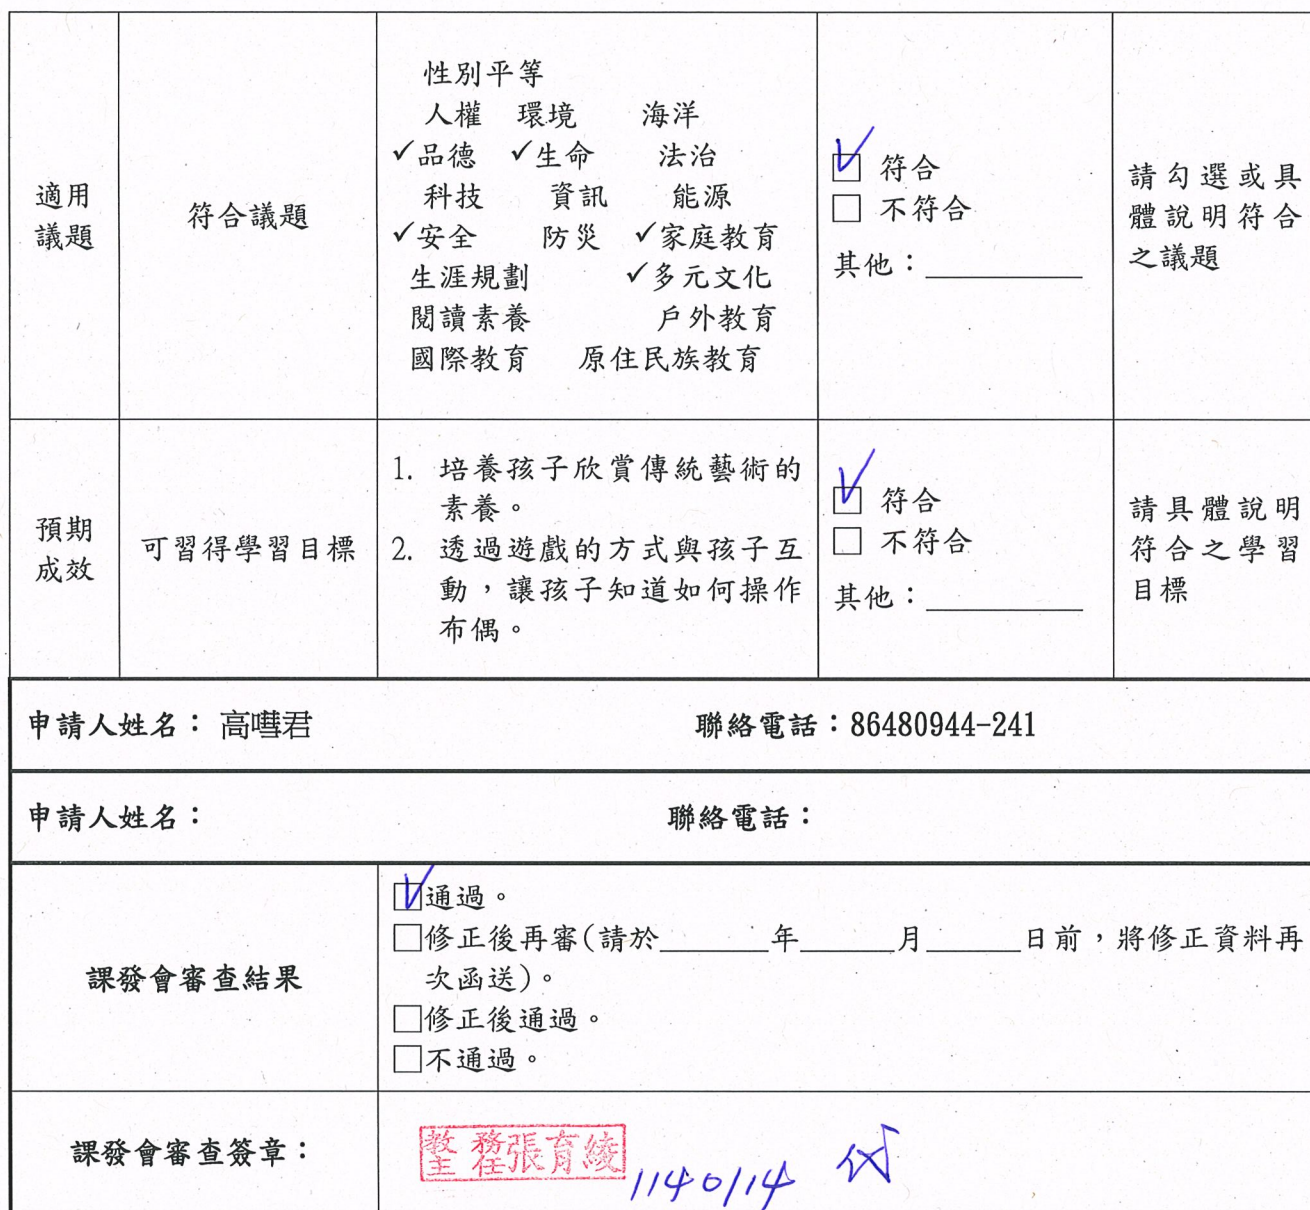 性別平等
人權 環境 海洋
✓品德 ✓生命 法治
科技 資訊 能源
✓安全 防災 ✓家庭教育
生涯規劃 ✓多元文化
閱讀素養 戶外教育
國際教育 原住民族教育
適用
議題
符合議題
☑ 符合
□ 不符合
其他：
請勾選或具
體說明符合
之議題
預期
成效
可習得學習目標
1. 培養孩子欣賞傳統藝術的
素養。
2. 透過遊戲的方式與孩子互
動，讓孩子知道如何操作
布偶。
☑ 符合
□ 不符合
其他：
請具體說明
符合之學習
目標
申請人姓名： 高嘒君 聯絡電話：86480944-241
申請人姓名： 聯絡電話：
課發會審查結果
☑通過。
□修正後再審(請於______年______月______日前，將修正資料再
次函送)。
□修正後通過。
□不通過。
課發會審查簽章：
教務主任張育綾
1140114